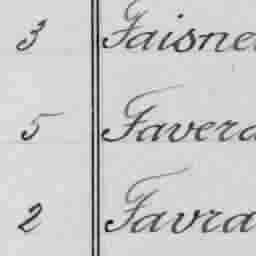 3 Faisne
5 Favera
2 Favra